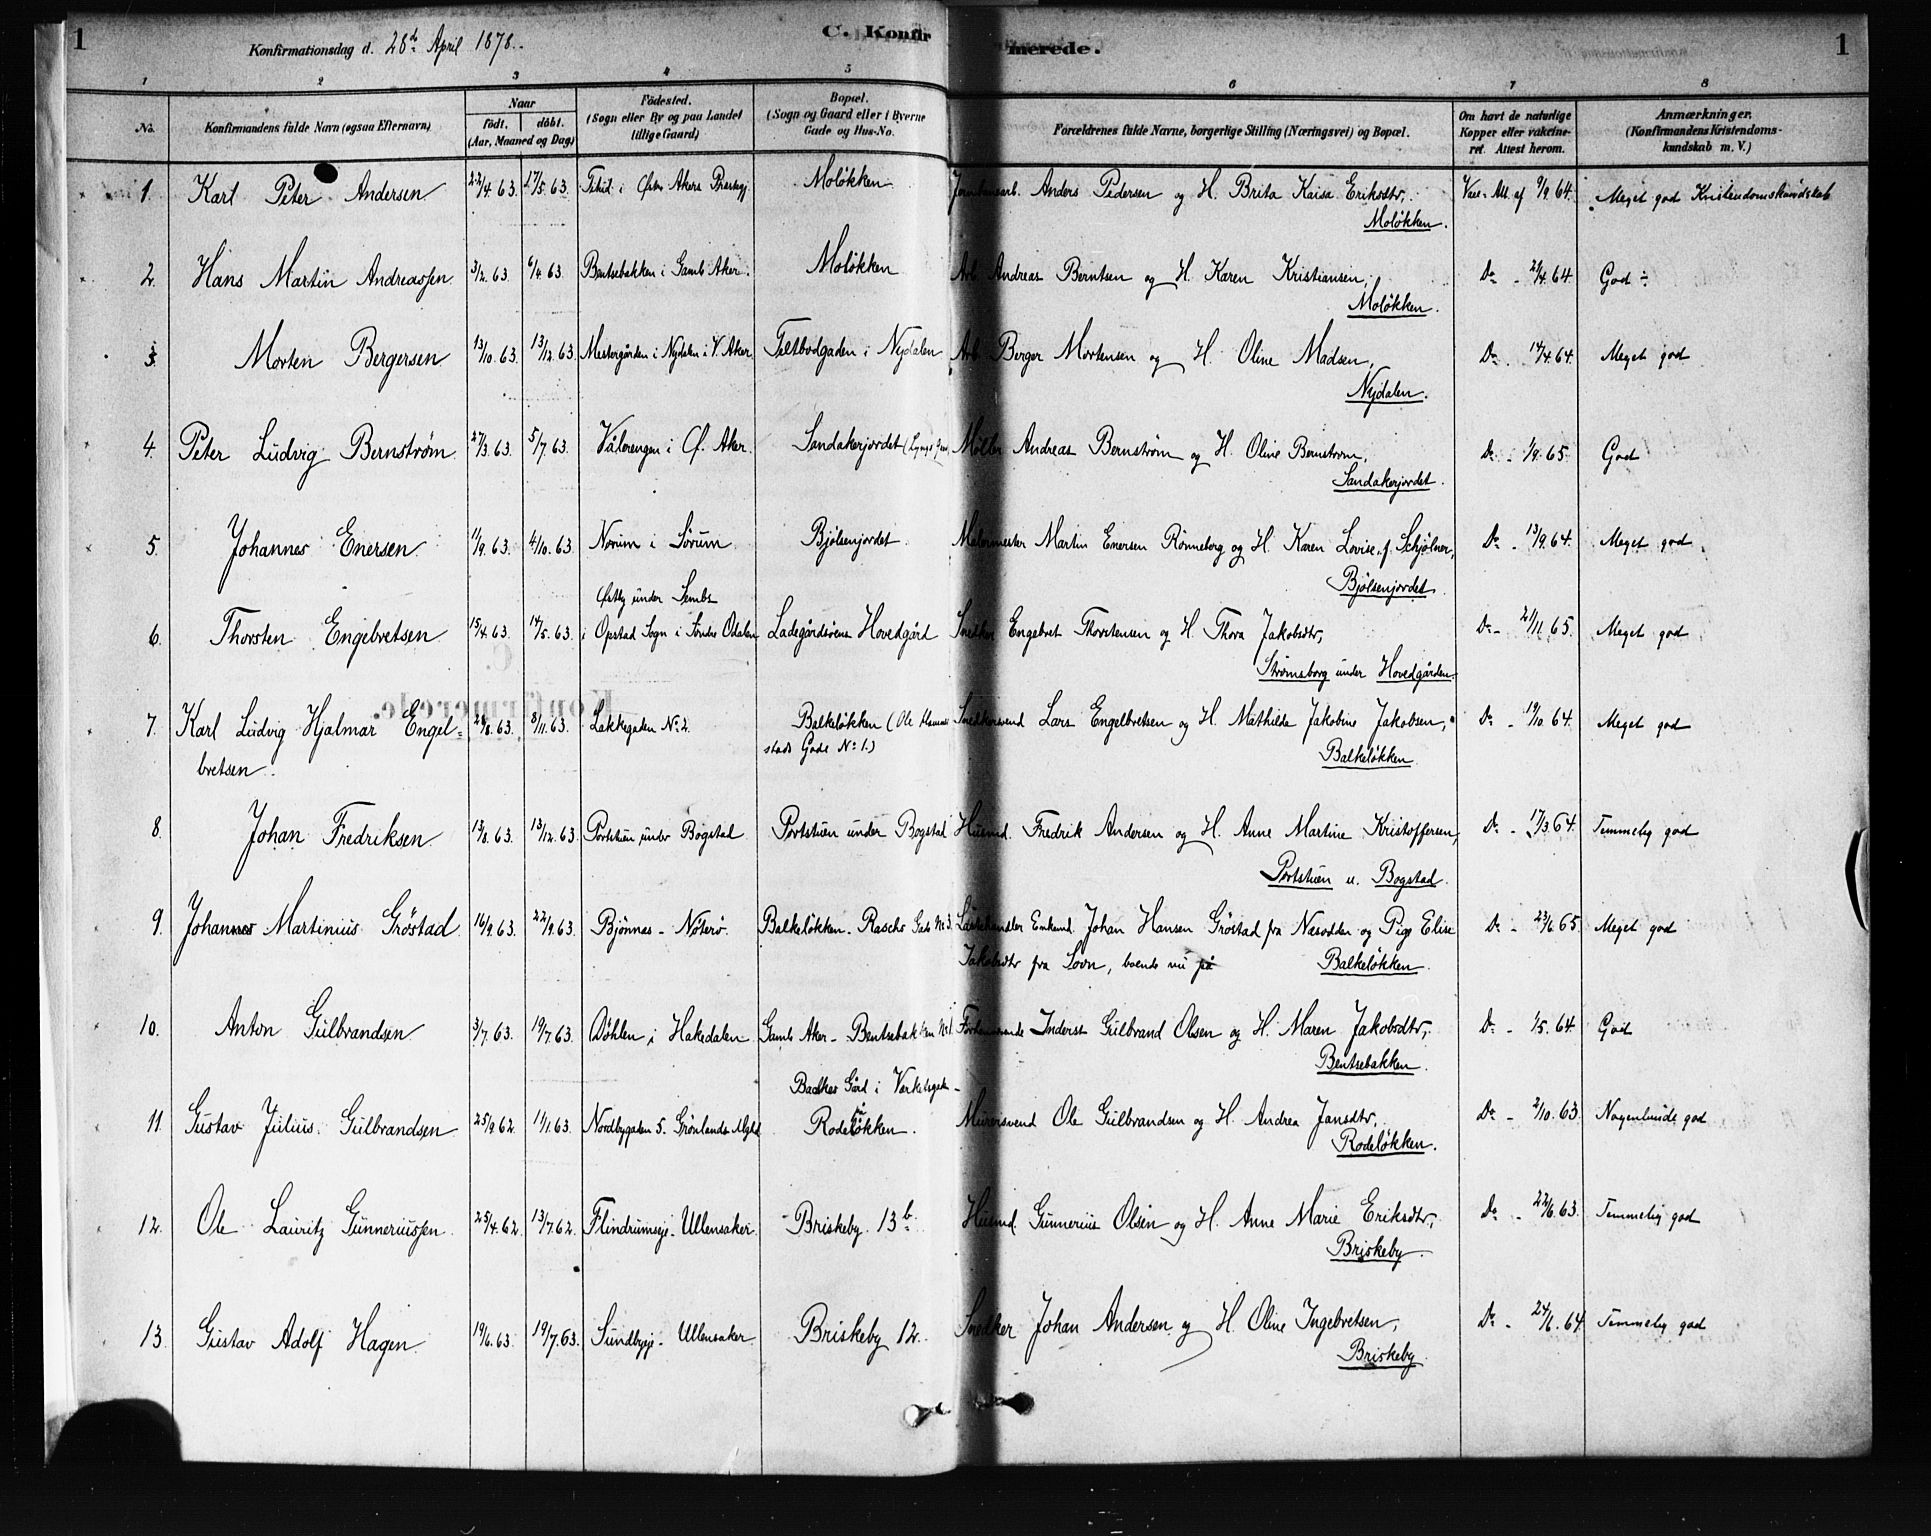 1
Konfirmationsdag d. 28de April 1878.
C. Konfirmerede.
1
1 2 3 4 5 6 7 8
No.
Konfirmandens fulde Navn (ogsaa Efternavn)
Naar
födt. döbt.
(Aar, Maaned og Dag)
Födested.
(Sogn eller By og paa Landet
tillige Gaard)
Bopæl.
(Sogn og Gaard eller i Byerne
Gade og Hus-No.
Forældrenes fulde Navne, borgerlige Stilling (Næringsvei) og Bopæl.
Om havt de naturlige
Kopper eller vakcine-
ret. Attest herom.
Anmærkninger.
(Konfirmandens Kristendoms-
kundskab m. V.)
1. Karl Peter Andersen 22/4 63. 17/5 63. i Østre Akers Præstegj. Moløkken Anders Pedersen og H. Brita Kaisa Eriksdtr, Vacc. Att. af 9/9 64. Meget god Kristendomskundskab
Moløkken.
2. Hans Martin Andreassen 3/2 63. 6/4 63. Bentsebakken i Gamle Aker. Moløkken Arb. Andreas Berntsen og H. Karen Kristiansen, Do - 2/4 64. God ÷
Moløkken.
3. Morten Bergersen 13/10 63. 13/12 63. Mestergården i Nydalen i V. Aker. Feltbodgaden i Nydalen Arb. Berger Mortensen og H. Oline Madsen, Do - 14/4 64. Meget god
Nydalen.
4. Peter Ludvig Bernstrøm 27/3 63. 5/7 63. Vålerengen i Ø. Aker. Sandakerjordet Møller Andreas Bernstrøm og H. Oline Bernstrøm, Do - 1/9 65. God
Sandakerjordet.
5. Johannes Enersen 11/9 63. 4/10 63. Norum i Sørum. Bjølsenjordet. Malermester Martin Enersen Rønneberg og H. Karen Lovise f. Schjølner, Do - 13/9 64. Meget god
Bjølsenjordet.
Østby under Sembs
6. Thorsten Engebretsen 15/4 63. 14/5 63. i Opstad Sogn i Søndre Odalen Ladegårdsøens Hovedgård Snedker Engebret Thorstensen og H. Thora Jakobsdtr, Do - 21/11 65. Meget god
Strømsborg under Hovedgården.
7. Karl Ludvig Hjalmar Engel- 28/8 63. 8/11 63. Lakkegaden No 2. Balkeløkken (Ole Hammer Snedkersvend Lars Engelbretsen og H. Mathilde Jakobine Jakobsen, Do - 19/10 64. Meget god
bretsen. stads Gade No 1.) Balkeløkken.
8. Johan Fredriksen 13/8 63. 13/12 63. Portstuen under Bogstad Portstuen under Bogstad Husmd. Fredrik Andersen og H. Anne Martine Kristoffersen, Do - 17/3 64. Temmelig god
Portstuen u. Bogstad.
9. Johannes Martinius Gröstad 16/9 63. 22/9 63. Bjønnæs - Nøterø. Balkeløkken. Raschs Gade No 3. Johan Hansen Gröstad fra Næsodden og Pige Elise Do - 23/6 65. Meget god
Jakobsdtr fra Sovn, boende nu på Balkeløkken.
10. Anton Gulbrandsen 3/7 63. 19/7 63. Døhlen i Hakedalen Gamle Aker - Bentsebakken No 1. Inderst Gulbrand Olsen og H. Maren Jakobsdtr, Do - 1/5. 64. God
Bentsebakken.
Gård i
11. Gustav Julius Gulbrandsen 25/9 62. 11/1 63. Nordbygaden 5. Grønlands Mghd på Rodeløkken. Murersvend Ole Gulbrandsen og H. Andrea Jansdtr, Do - 2/10. 63. Nogenlunde god
Rodeløkken.
12. Ole Lauritz Gunneriussen. 25/4. 62. 13/7 62. Flindrumseje - Ullensaker. Briskeby. 13b. Husmd. Gunnerius Olsen og H. Anne Marie Eriksdtr, Do - 22/6. 63. Temmelig god
Briskeby.
13. Gustav Adolf Hagen. 19/6. 63. 19/7. 63. Sundbyeje - Ullensaker. Briskeby 12. Snedker Johan Andersen og H. Oline Ingebretsen, Do - 24/6. 64. Temmelig god
Briskeby.